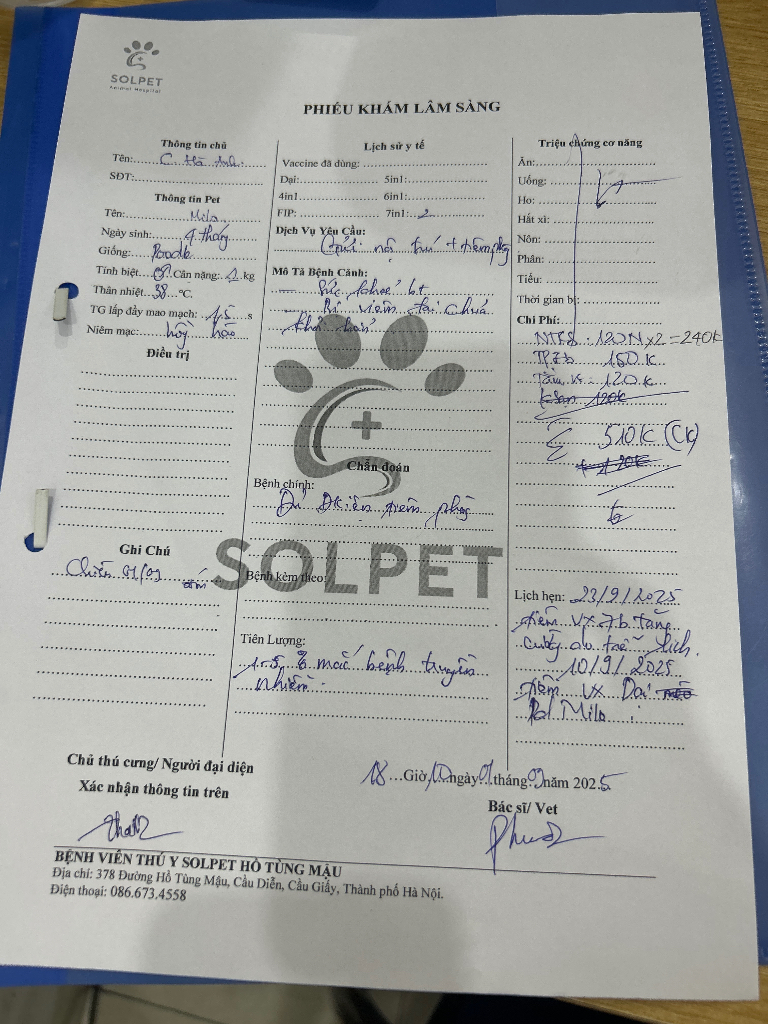 SOLPET
Animal Hospital
PHIẾU KHÁM LÂM SÀNG
Thông tin chủ
Tên: C. Hà Anh
SĐT:
Thông tin Pet
Tên: Milo
Ngày sinh: 4 tháng
Giống: Poodle
Tính biệt: Cân nặng: kg
Thân nhiệt 38 °C.
TG lấp đầy mao mạch: 1.5 s
Niêm mạc: hồng hào
Điều trị
Ghi Chú
Chiều 01/09 đón
Lịch sử y tế
Vaccine đã dùng:
Dại: 5in1:
4in1 6in1:
FIP: 7in1: 2
Dịch Vụ Yêu Cầu:
Gửi nội trú + tiêm phg
Mô Tả Bệnh Cảnh:
- Sức khoẻ bt
- Bị viêm tai chưa
khỏi hẳn
Chẩn đoán
Bệnh chính:
Đủ Đkiện tiêm phòng
SOLPET
Bệnh kèm theo:
Tiên Lượng:
1-5 % mắc bệnh truyền
nhiễm
Triệu chứng cơ năng
Ăn:
Uống:
Ho:
Hắt xì:
Nôn:
Phân:
Tiểu:
Thời gian bị:
Chi Phí:
120N x2 = 240K
150K
Tắm 120K
120K
510K (CK)
Lịch hẹn: 23/9/2025
tiêm VX 7b tăng
cường do trễ lịch.
10/9/2025
tiêm VX Dại
Milo
Chủ thú cưng/ Người đại diện
Xác nhận thông tin trên
18 Giờ 10 ngày 01 tháng 09 năm 2025
Bác sĩ/ Vet
BỆNH VIỆN THÚ Y SOLPET HỒ TÙNG MẬU
Địa chỉ: 378 Đường Hồ Tùng Mậu, Cầu Diễn, Cầu Giấy, Thành phố Hà Nội.
Điện thoại: 086.673.4558